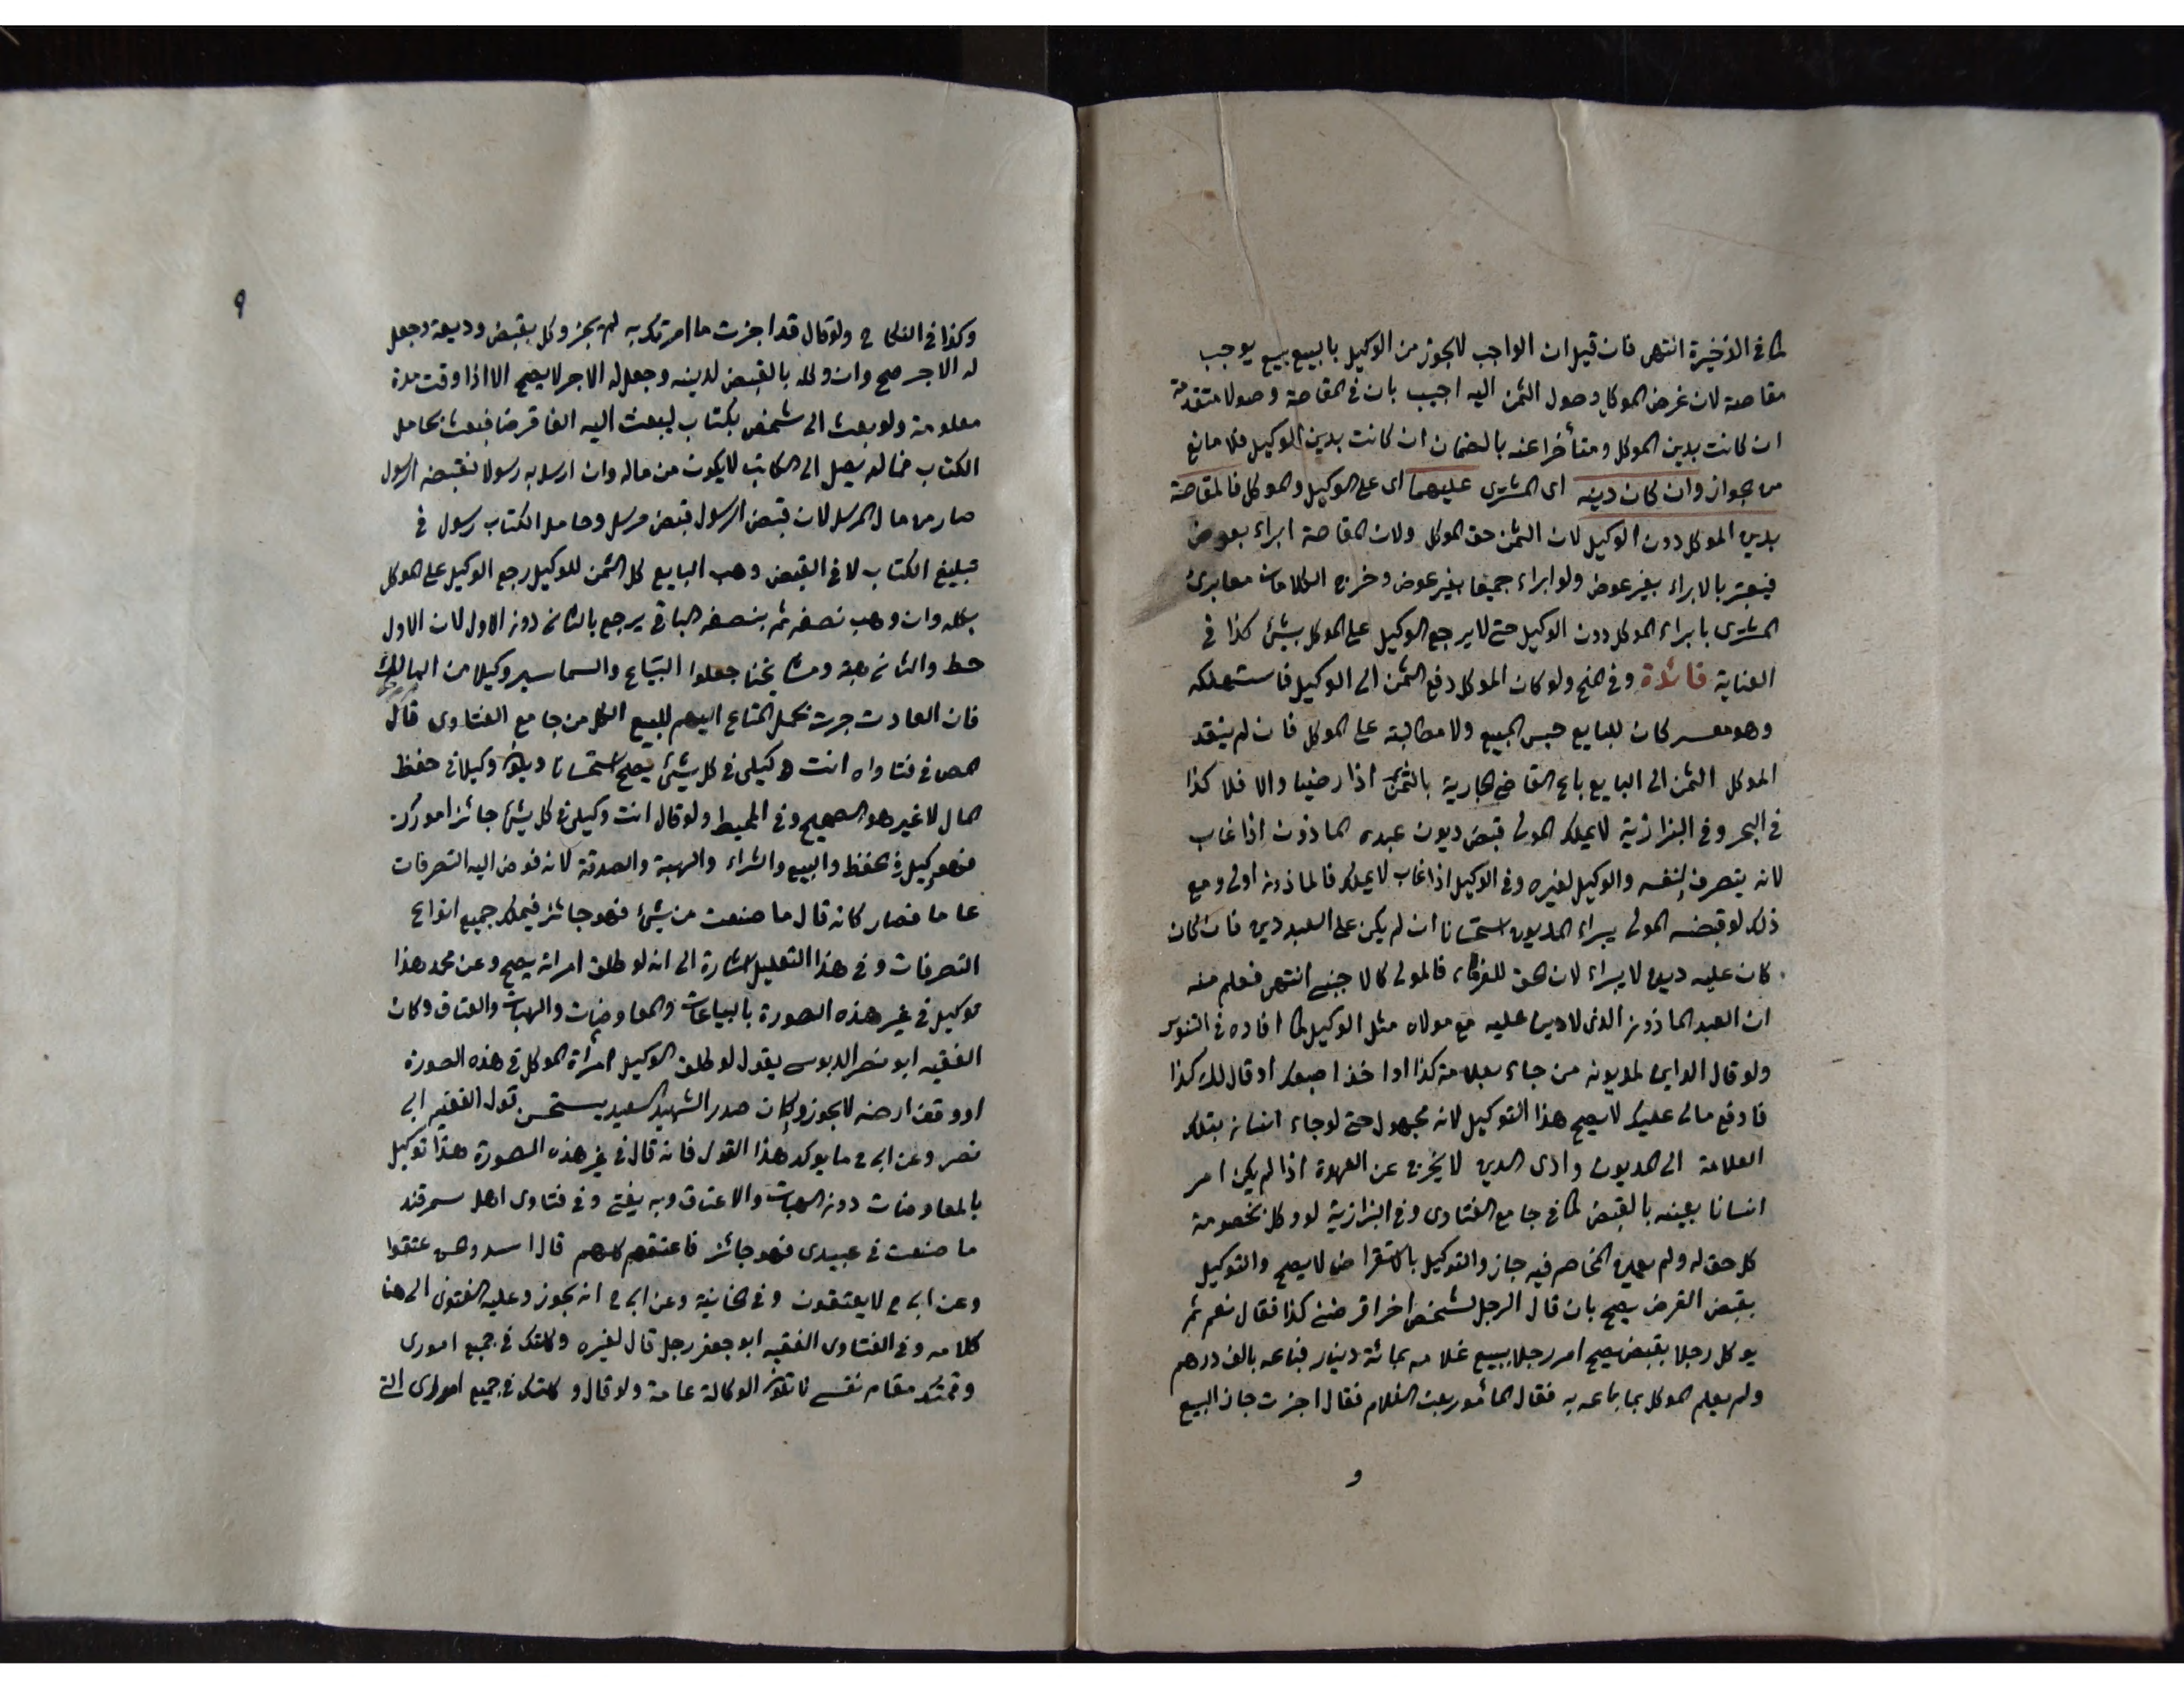 كما في الذخيرة انتهى فان قيل ان الواجب لا يجوز من الوكيل بالبيع بيع يوجب
مقاصة لان غرض الموكل وصول الثمن اليه اجيب بان في المقاصة وصولا متقدمة
ان كانت بدين الموكل ومتأخرا عنه بالضمان ان كانت بدين الوكيل فلا مانع
من الجواز وان كان دينه اى المشترى عليهما اى على الوكيل والموكل فالمقاصة
بدين الموكل دون الوكيل لان الثمن حق الموكل ولان المقاصة ابراء بعوض
فيعتبر بالابراء بغير عوض ولو ابراء جميعا بغير عوض وخرج الكلامان معا برئ
المشترى بابراء الموكل دون الوكيل حتى لا يرجع الوكيل على الموكل بشئ كذا في
العناية فائدة وفى المنح ولو كان الموكل دفع الثمن الى الوكيل فاستهلكه
وهو معسر كان للبايع حبس المبيع ولا مطالبة على الموكل فان لم ينقد
الموكل الثمن الى البايع باع القاضى الجارية بالثمن اذا رضيا والا فلا كذا
في البحر وفى البزازية لا يملك المولى قبض ديون عبده المأذون اذا غاب
لانه يتصرف لنفسه والوكيل لغيره وفى الوكيل اذا غاب لا يملك فالماذون اولى ومع
ذلك لو قبضه المولى يبراء المديون استحسانا ان لم يكن على العبد دين فان كان
كان عليه ديون لا يبراء لان الحق للغرماء فالمولى كالاجنبى انتهى فعلم منه
ان العبد الماذون الذى لا دين عليه مع مولاه مثل الوكيل كما افاده في التنوير
ولو قال الداين لمديونه من جاء بعلامة كذا او اخذ اصبعك او قال لك كذا
فادفع مالى عليك لا يصح هذا التوكيل لانه مجهول حتى لو جاء انسان بتلك
العلامة الى المديون وادى الدين لا يخرج عن العهدة اذا لم يكن امر
انسانا بعينه بالقبض كما في جامع الفتاوى وفى البزازية لو وكل بخصومة
كل حق له ولم يعين المخاصم فيه جاز والتوكيل بالاستقراض لا يصح والتوكيل
بقبض القرض يصح بان قال الرجل لشخص اخر اقرضنى كذا فقال نعم ثم
يوكل رجلا بقبض صح امر رجلا ببيع غلامه بمائة دينار فباعه بالف درهم
ولم يعلم الموكل بما باعه به فقال المأمور بعت الغلام فقال اجزت جاز البيع
و
٩
وكذا في النكاح ولو قال قد اجزت ما امرتك به لم يجز وكل بقبض وديعة وجعل
له الاجر صح وان وكله بالقبض لدينه وجعل له الاجر لا يصح الا اذا وقت مدة
معلومة ولو بعث الى شخص بكتاب ليبعث اليه الفا قرضا فبعث بحامل
الكتاب فما لم يصل الى الكاتب لا يكون من ماله وان ارسل به رسولا فقبضه الرسول
صار من مال المرسل لان قبض الرسول قبض مرسل وحامل الكتاب رسول في
تبليغ الكتاب لا في القبض وهب البايع كل الثمن للوكيل رجع الوكيل على الموكل
بكله وان وهب نصفه ثم بنصفه الباقي يرجع بالثانى دون الاول لان الاول
حط والثانى هبة ومشايخنا جعلوا البياع والسماسير وكيلا من المالك
فان العادت جرت بحمل المتاع اليهم للبيع الكل من جامع الفتاوى قال
المص في فتاواه انت وكيلى في كل شئ يصح استحسانا ويكون وكيلا في حفظ
المال لا غير هو الصحيح وفى المحيط ولو قال انت وكيلى في كل شئ جائز امورك
فهو وكيل في الحفظ والبيع والشراء والهبة والصدقة لانه فوض اليه التصرفات
عاما فصار كانه قال ما صنعت من شئ فهو جائز فيملك جميع انواع
التصرفات وفى هذا التعليل اشارة الى انه لو طلق امراته يصح وعن محمد هذا
توكيل في غير هذه الصورة بالبياعات والمعاوضات والهبات والعتاق وكان
الفقيه ابو نصر الدبوسى يقول لو طلق الوكيل امرأة الموكل في هذه الصورة
او وقف ارضه لا يجوز وكان صدر الشهيد السعيد يستحسن قول الفقيه ابى
نصر وعن ابى ح ما يوكد هذا القول فانه قال في غير هذه الصورة هذا توكيل
بالمعاوضات دون الهبات والاعتاق وبه يفتى وفى فتاوى اهل سمرقند
ما صنعت في عبيدى فهو جائز فاعتقهم كلهم قال اسد وهس عتقوا
وعن ابى ح لا يعتقون وفى الخانية وعن ابى ح انه يجوز وعليه الفتوى الى هنا
كلامه وفى الفتاوى الفقيه ابو جعفر رجل قال لغيره وكلتك في جميع امورى
واقمتك مقام نفسى لا تكون الوكالة عامة ولو قال وكلتك في جميع امورى التى